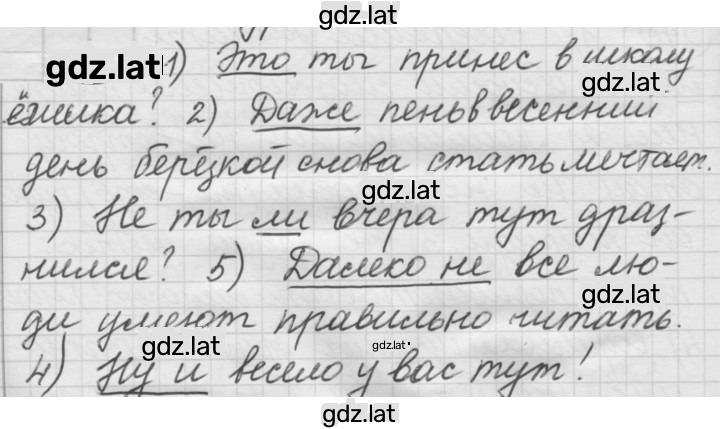 gdz.lat
gdz.lat 1) Это ты принес в школу
gdz.lat
ёжика? 2) Даже пень в весенний
день берёзкой снова стать мечтает.
gdz.lat
3) Не ты ли вчера тут драз-
нился? 5) Далеко не все лю-
gdz.lat
ди умеют правильно читать.
gdz.lat gdz.lat
4) Ну и весело у вас тут!
gdz.lat